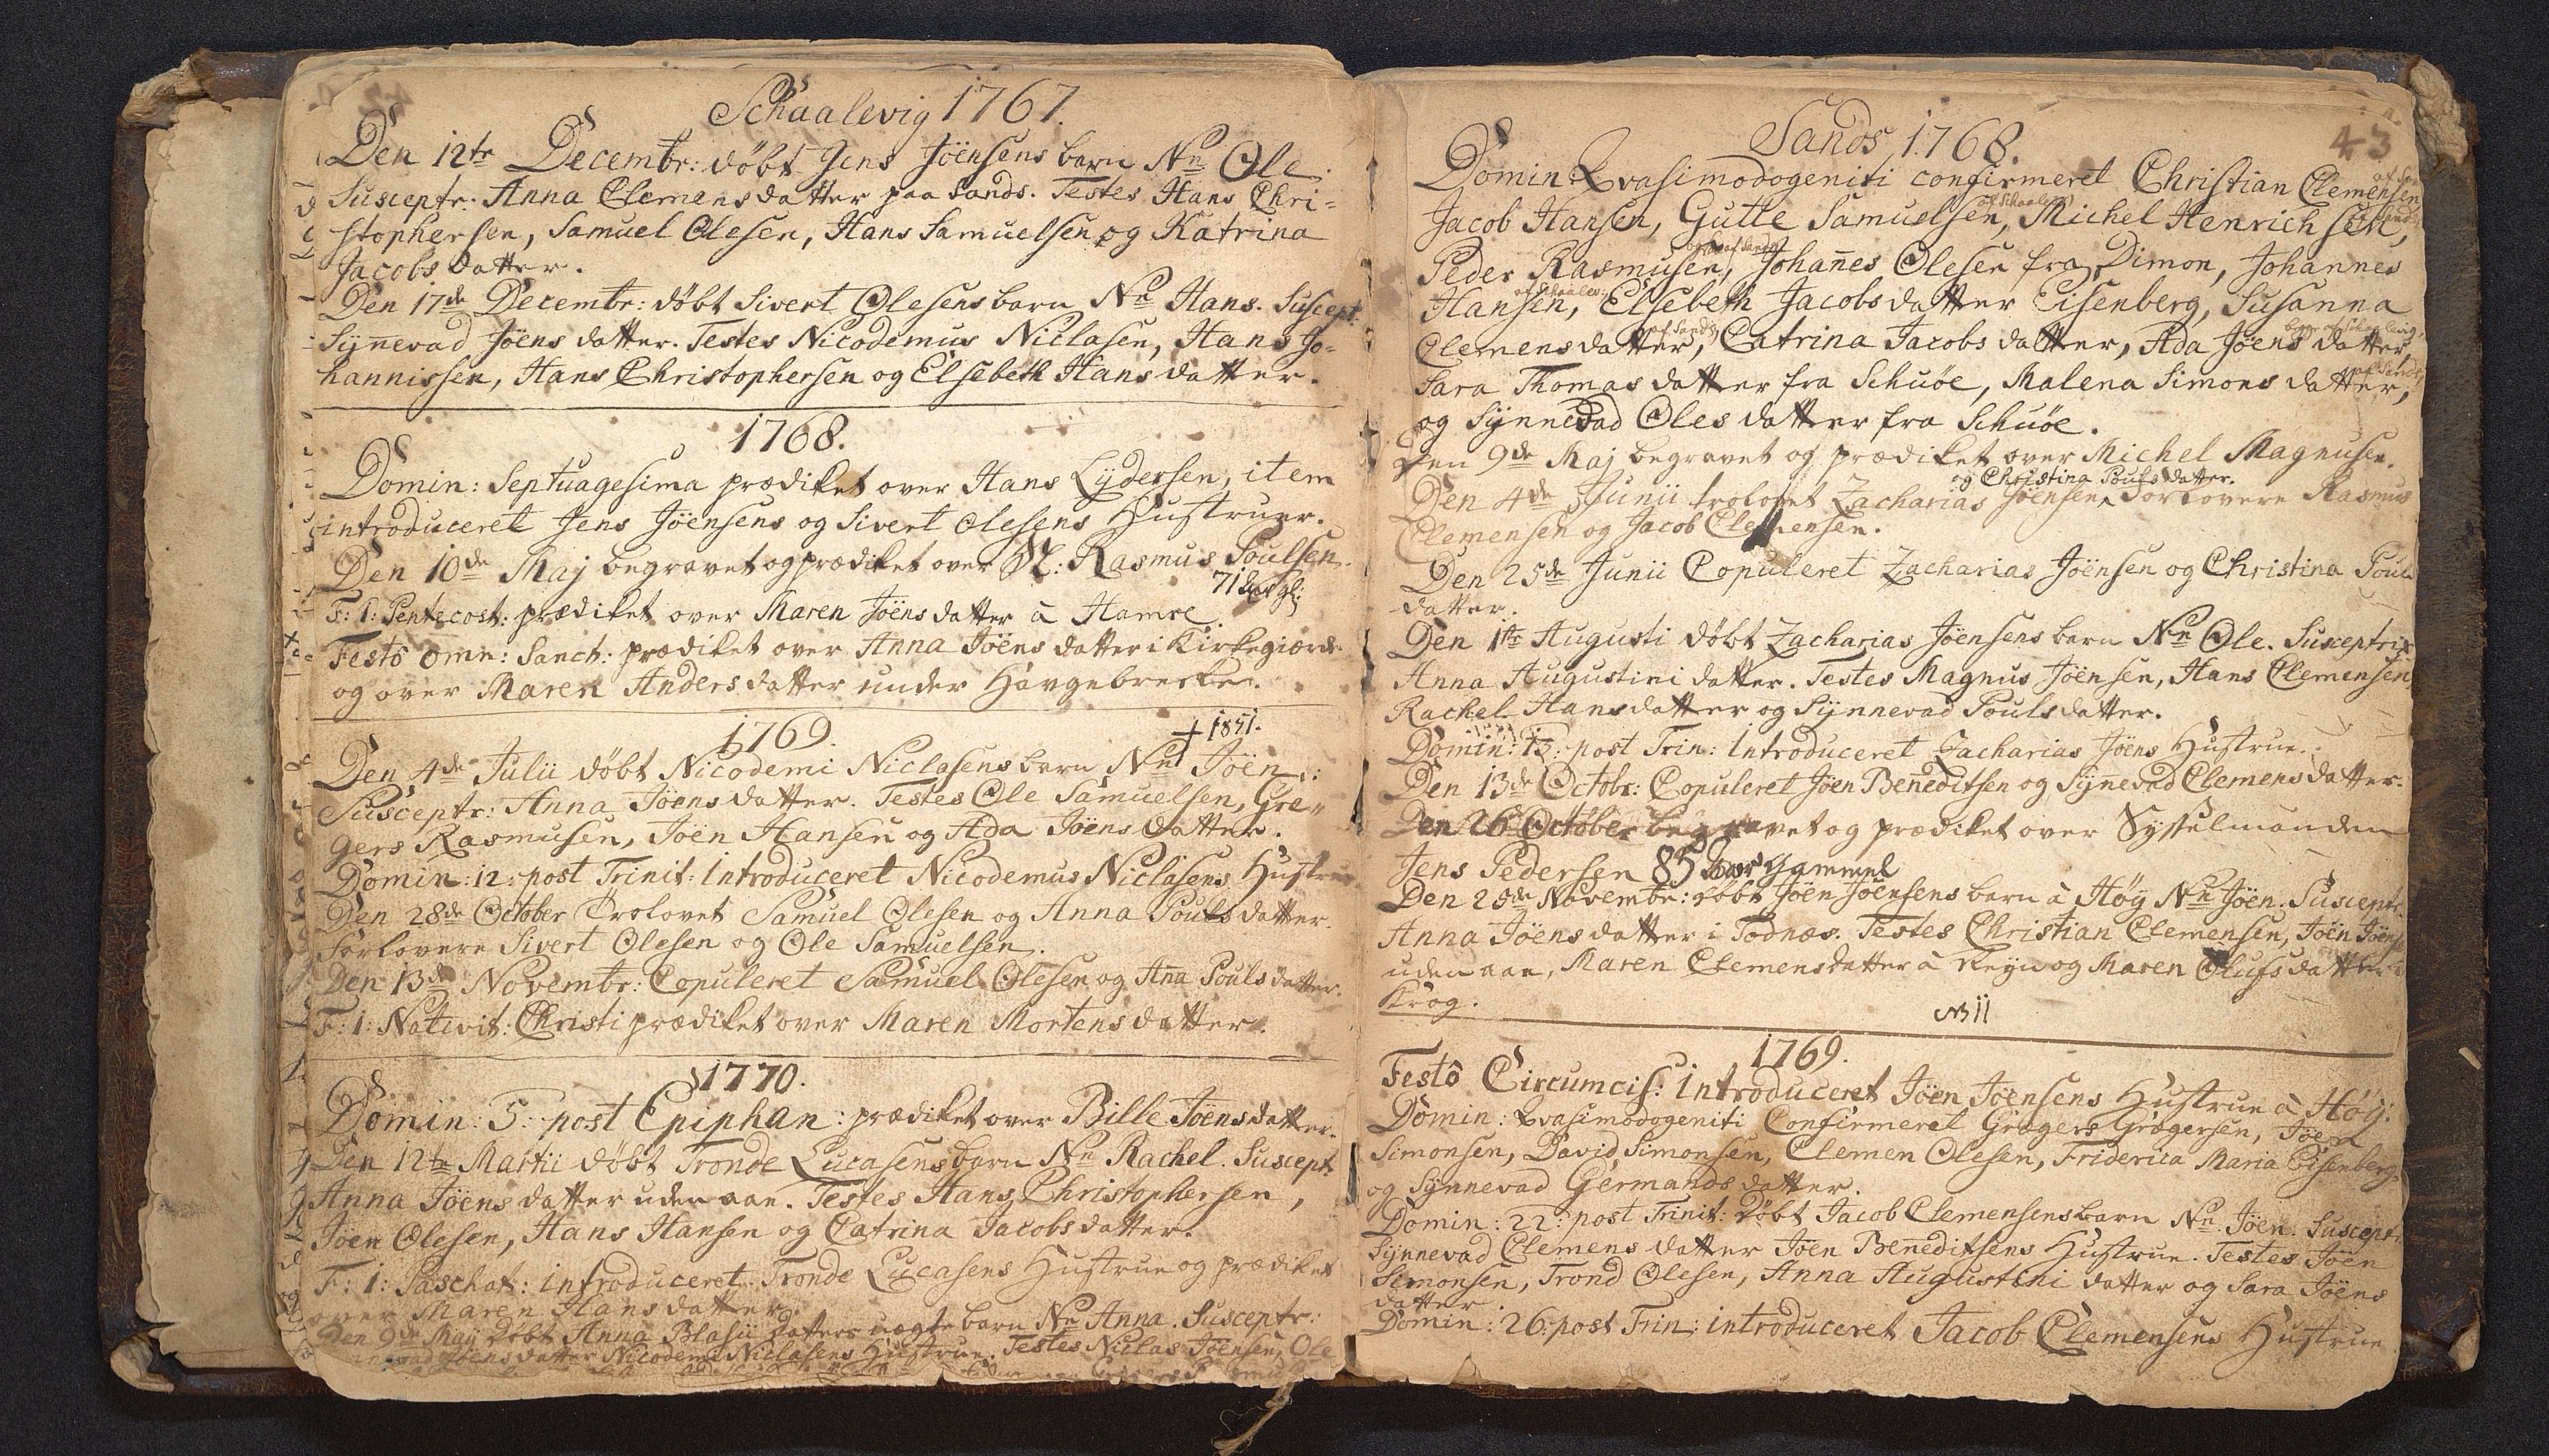 Schaalevig 1767.
Den 12te Decembr: døbt Jens Jöensens barn Nn Ole.
Susceptr: Anna Clemensdatter paa Sands. Testes Hans Chri=
stophersen, Samuel Olesen, Hans Samuelsen og Katrina
Jacobsdatter.
Den 17de Decembr: døbt Sivert Olesens barn Nn Hans. Suscept:
Synnevad Jöensdatter. Testes Nicodemus Niclasen, Hans Jo=
hannissen, Hans Christophersen og Elsebeth Hansdatter.
1768.
Domin: Septuagesima prædiket over Hans Lydersen, item
introduceret Jens Jöensens og Sivert Olesens Hustruer.
Den 10de Maj begravet og prædiket over Sl: Rasmus Poulsen.
71 Aar gl:
F: 1: Pentecost: prædiket over Maren Jöensdatter à Hamre.
Festô omn: Sanct: prædiket over Anna Jöensdatter i Kirkegiærde
og over Maren Andersdatter under Havgebrecke.
1769. † 1851.
Den 4de Julii døbt Nicodemi Niclasens barn Nn Jöen:
Susceptr: Anna Jöensdatter. Testes Ole Samuelsen, Gre=
gers Rasmusen, Jöen Hansen og Ada Jöensdatter.
Domin: 12: post Trinit: Introduceret Nicodemus Niclasens Hustrue
Den 28de October Trolovet Samuel Olesen og Anna Poulsdatter.
Forlovere Sivert Olesen og Ole Samuelsen.
Den 13de Novembr: Copuleret Samuel Olesen og Ana Poulsdatter.
F: 1: Nativit: Christi prædiket over Maren Mortensdatter.
1770.
Domin: 5: post Epiphan: prædiket over Bille Jöensdatter.
Den 12te Martii døbt Tronde Lucasens barn Nn Rachel. Suscept
Anna Jöensdatter uden aae. Testes Hans Christophersen,
Jöen Olesen, Hans Hansen og Catrina Jacobsdatter.
F: 1: Paschat: introduceret Tronde Lucasens Hustrue og prædiket
over Maren Hansdatter.
Den 9de Maij døbt Anna Blasii datters uægte barn Nn Anna. Susceptr:
Jöensdatter Nicodemi Niclasens Hustrue. Testes Niclas Jöensen, Ole
Sands 1768.
43
Domin Qvasimodogeniti confirmeret Christian Clemensen
af Schaalev:
Jacob Hansen, Gutte Samuelsen, Michel Henrichsen,
Peder Rasmusen, Johañes Olesen fra Dimon, Johannes
af Schaalev:
Hansen, Elsebeth Jacobsdatter Eisenberg, Susanna
af Sands begge af Schaalevig
Clemensdatter, Catrina Jacobsdatter, Ada Jöensdatter,
af Sands
Sara Thomasdatter fra Schuöe, Malena Simonsdatter,
og Synnevad Olesdatter fra Schuöe.
Den 9de Maj begravet og prædiket over Michel Magnusen.
og Christina Poulsdatter.
Den 4de Junii trolovet Zacharias Jöensen, Forlovere Rasmus
Clemensen og Jacob Clemensen.
Den 25de Junii Copuleret Zacharias Jöensen og Christina Pouls
datter.
Den 1te Augusti døbt Zacharias Jöensens barn Nn Ole. Susceptrix
Anna Augustini datter. Testes Magnus Jöensen, Hans Clemensen,
Rachel Hansdatter og Synnevad Poulsdatter.
Domin: 13: post Trin: Introduceret Zacharias Jöens Hustrue.
Den 13de Octobr: Copuleret Jöen Beneditsen og Syñevad Clemensdatter.
Den 26 October begravet og prædiket over Sysselmanden
Jens Pedersen 85 Aar gammel
Den 20de Novembr: døbt Jöen Jöensens barn à Høy Nn Jöen. Susceptr.
Anna Jöensdatter i Todnæs. Testes Christian Clemensen, Jöen Jöens
uden aae, Maren Clemensdatter à Reyn og Maren Olufsdatter i
Krog.
NB 11
1769.
Festô Circumcis: Introduceret Jöen Jöensens Hustrue à Høy:
Domin: Qvasimodogeniti Confirmeret Grøgers Grøgersen, Jöen
Simonsen, David Simonsen, Clemen Olesen, Friderica Maria Eisenberg
og Synnevad Germandsdatter.
Domin: 22: post Trinit: døbt Jacob Clemensens barn Nn Jöen. Suscept:
Synnevad Clemensdatter Jöen Beneditsens Hustrue. Testes Jöen
Simonsen, Trond Olesen, Anna Augustini datter og Sara Jöens
datter.
Domin: 26: post Trin: introduceret Jacob Clemensens Hustrue